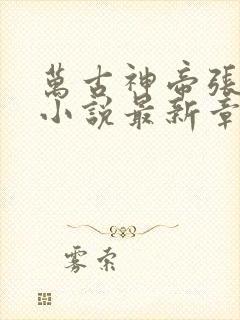 萬古神帝張
小說最新章
雾索